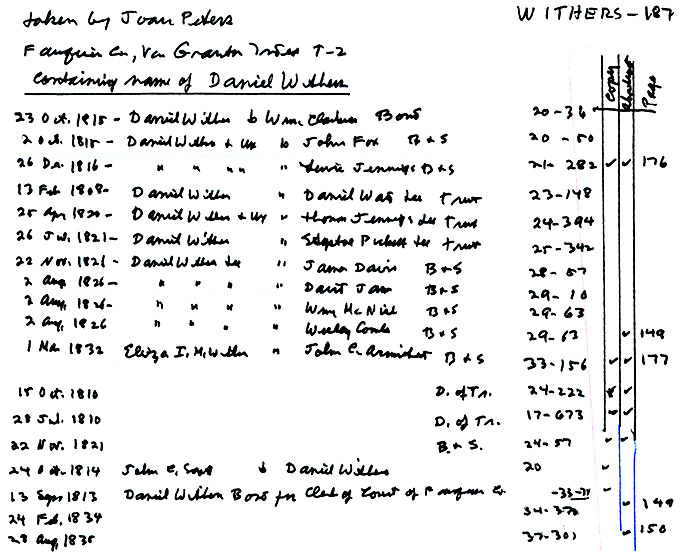 WITHERS - 187
taken by Joan Peters
Fauquier Co, Va Grantor Index T-2
Containing name of Daniel Withers
Copy Abstract Page
23 Oct. 1815 - Daniel Withers to Wm. Bond 20-36
2 Oct. 1815 - Daniel Withers & Ux to John Fox B & S 20-50
26 Dec. 1816 - " " " " " Lewis Jennings B & S 21-282 ✓ ✓ 176
13 Feb 1808 - Daniel Withers " Daniel Trust 23-148
25 Apr 1820 - Daniel Withers & Ux " Thomas Jennings Trust 24-394
26 1821 - Daniel Withers " Pickett Trust 25-342
22 Nov. 1826 - Daniel Withers " James Davis B & S 28-57
2 Aug 1826 - " " " " David B & S 29-10
2 Aug, 1826 - " " " " Wm McNiel B & S 29-63
2 Aug, 1826 " " " " Wesley Combs B & S 29-63 ✓ 149
1 Mar 1832 Eliza I. M. Withers " John C. B & S 33-156 ✓ ✓ 177
15 Oct. 1810 D. of Tr. 24-222 ✓ ✓
28 Jul. 1810 D. of Tr. 17-673 ✓ ✓
22 Nov. 1821 B & S. 24-57 ✓ ✓
24 Oct. 1814 John E. to Daniel Withers 20 ✓
13 Sept 1813 Daniel Withers Bond for Clerk of Court of Fauquier Co -33- ✓
24 Feb, 1834 34-370 ✓ 149
28 Aug, 1835 37-301 ✓ 150